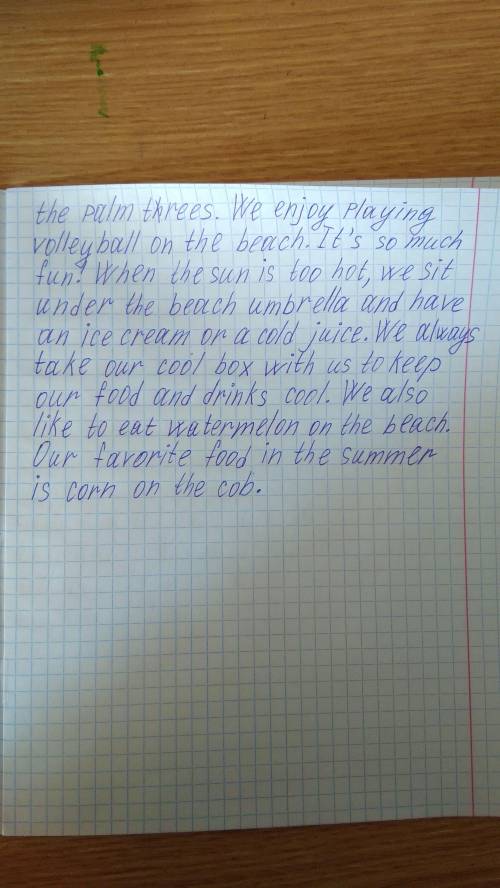 the palm threes. We enjoy playing
volleyball on the beach. It's so much
fun! When the sun is too hot, we sit
under the beach umbrella and have
an ice cream or a cold juice. We always
take our cool box with us to keep
our food and drinks cool. We also
like to eat watermelon on the beach.
Our favorite food in the summer
is corn on the cob.